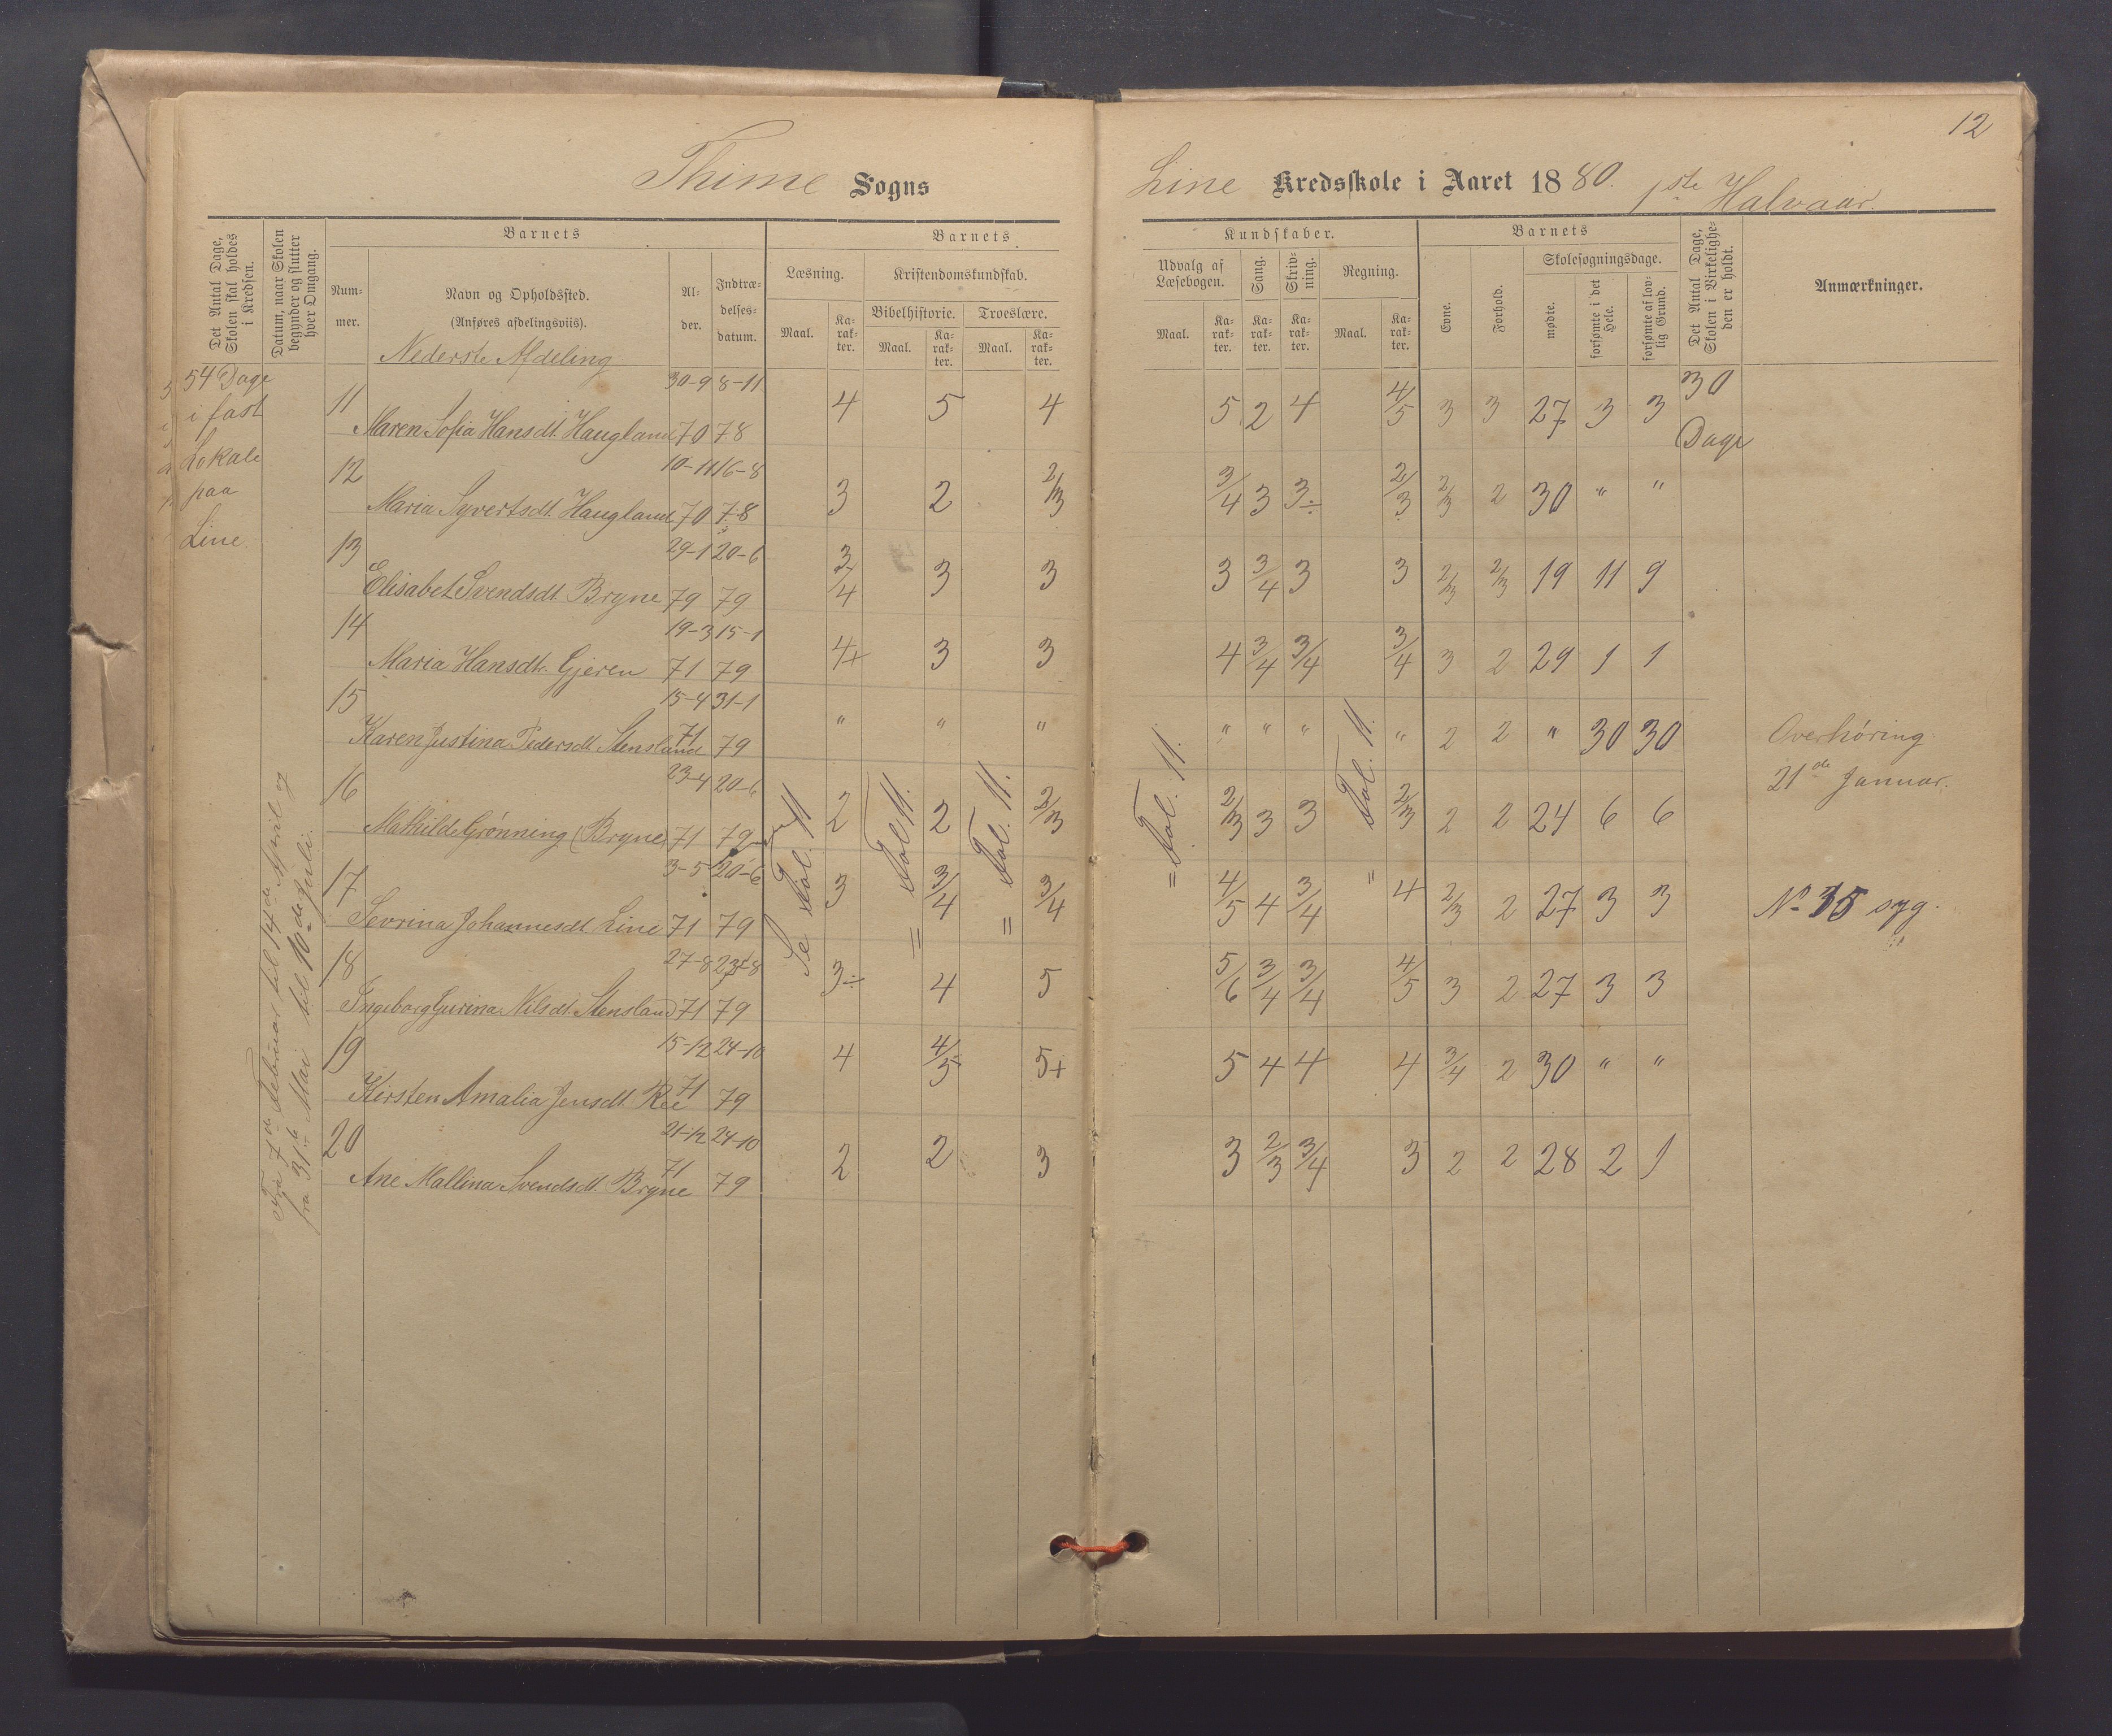 12
Thime Sogns
Line Kredsskole i Aaret 1880. 1ste Halvaar.
Det Antal Dage, Skolen skal holdes i Kredsen.
Datum, naar Skolen begynder og slutter hver Omgang.
Barnets
Nummer.
Navn og Opholdssted.
(Anføres afdelingsviis).
Nederste Afdeling
Alder.
Indtrædelsesdatum.
Barnets
Læsning.
Maal.
Karakter.
Kristendomskundskab.
Bibelhistorie.
Maal.
Karakter.
Troeslære.
Maal.
Karakter.
Kundskaber.
Udvalg af Læsebogen.
Maal.
Karakter.
Sang.
Karakter.
Skrivning.
Karakter.
Regning.
Maal.
Karakter.
Barnets
Evne.
Forhold.
Skolesøgningsdage.
mødte.
forsømte i det Hele.
forsømte af lovlig Grund.
Det Antal Dage, Skolen i Virkeligheden er holdt.
Anmærkninger.
54 Dage
i fast
Lokale
paa
Line
Fra 7de Februar til 14de April og
fra 31te Mai til 10de Juli.
11 Maren Sofia Hansdt. Haugland 30-9 70 8-11 78 4 5 4 5 2 4 4/5 3 3 27 3 3 30 Dage
12 Maria Syvertsdt. Haugland 10-11 70 16-8 78 3 2 2/3 3/4 3 3÷ 2/3 2/3 2 30 " "
13 Elisabet Svendsdt. Bryne 29-1 79 20-6 79 3/4 3 3 3 3/4 3 3 2/3 2/3 19 11 9
14 Maria Hansdtr. Gjeren 19-3 71 15-1 79 4+ 3 3 4 3/4 3/4 3/4 3 2 29 1 1
15 Karen Justina Pedersdt. Stensland 15-4 71 31-1 79 " " " " " " " 2 2 " 30 30
16 Mathilde Grønning (Bryne) 23-4 71 20-6 79 2 2 2/3 2/3 3 3 2/3 2 2 24 6 6
17 Sevrina Johannesdt. Line 3-5 71 20-6 79 3 3/4 3/4 4/5 4 3/4 4 2/3 2 27 3 3
18 Ingeborg Gurina Nilsdt. Stensland 27-8 71 79 3÷ 4 5 5/6 3/4 3/4 4/5 3 2 27 3 3
19 Kirsten Amalia Jensdt. Ree 15-12 71 24-10 79 4 4/5 5+ 5 4 4 4 3/4 2 30 " "
20 Ane Mallina Svendsdt. Bryne 21-12 71 24-10 79 2 2 3 3 2/3 3/4 3 2 2 28 2 1
Se Fol. 11
= Fol. 11.
= Fol. 11.
= Fol. 11.
= Fol. 11.
Overhøring
21de Januar.
No 15 syg.